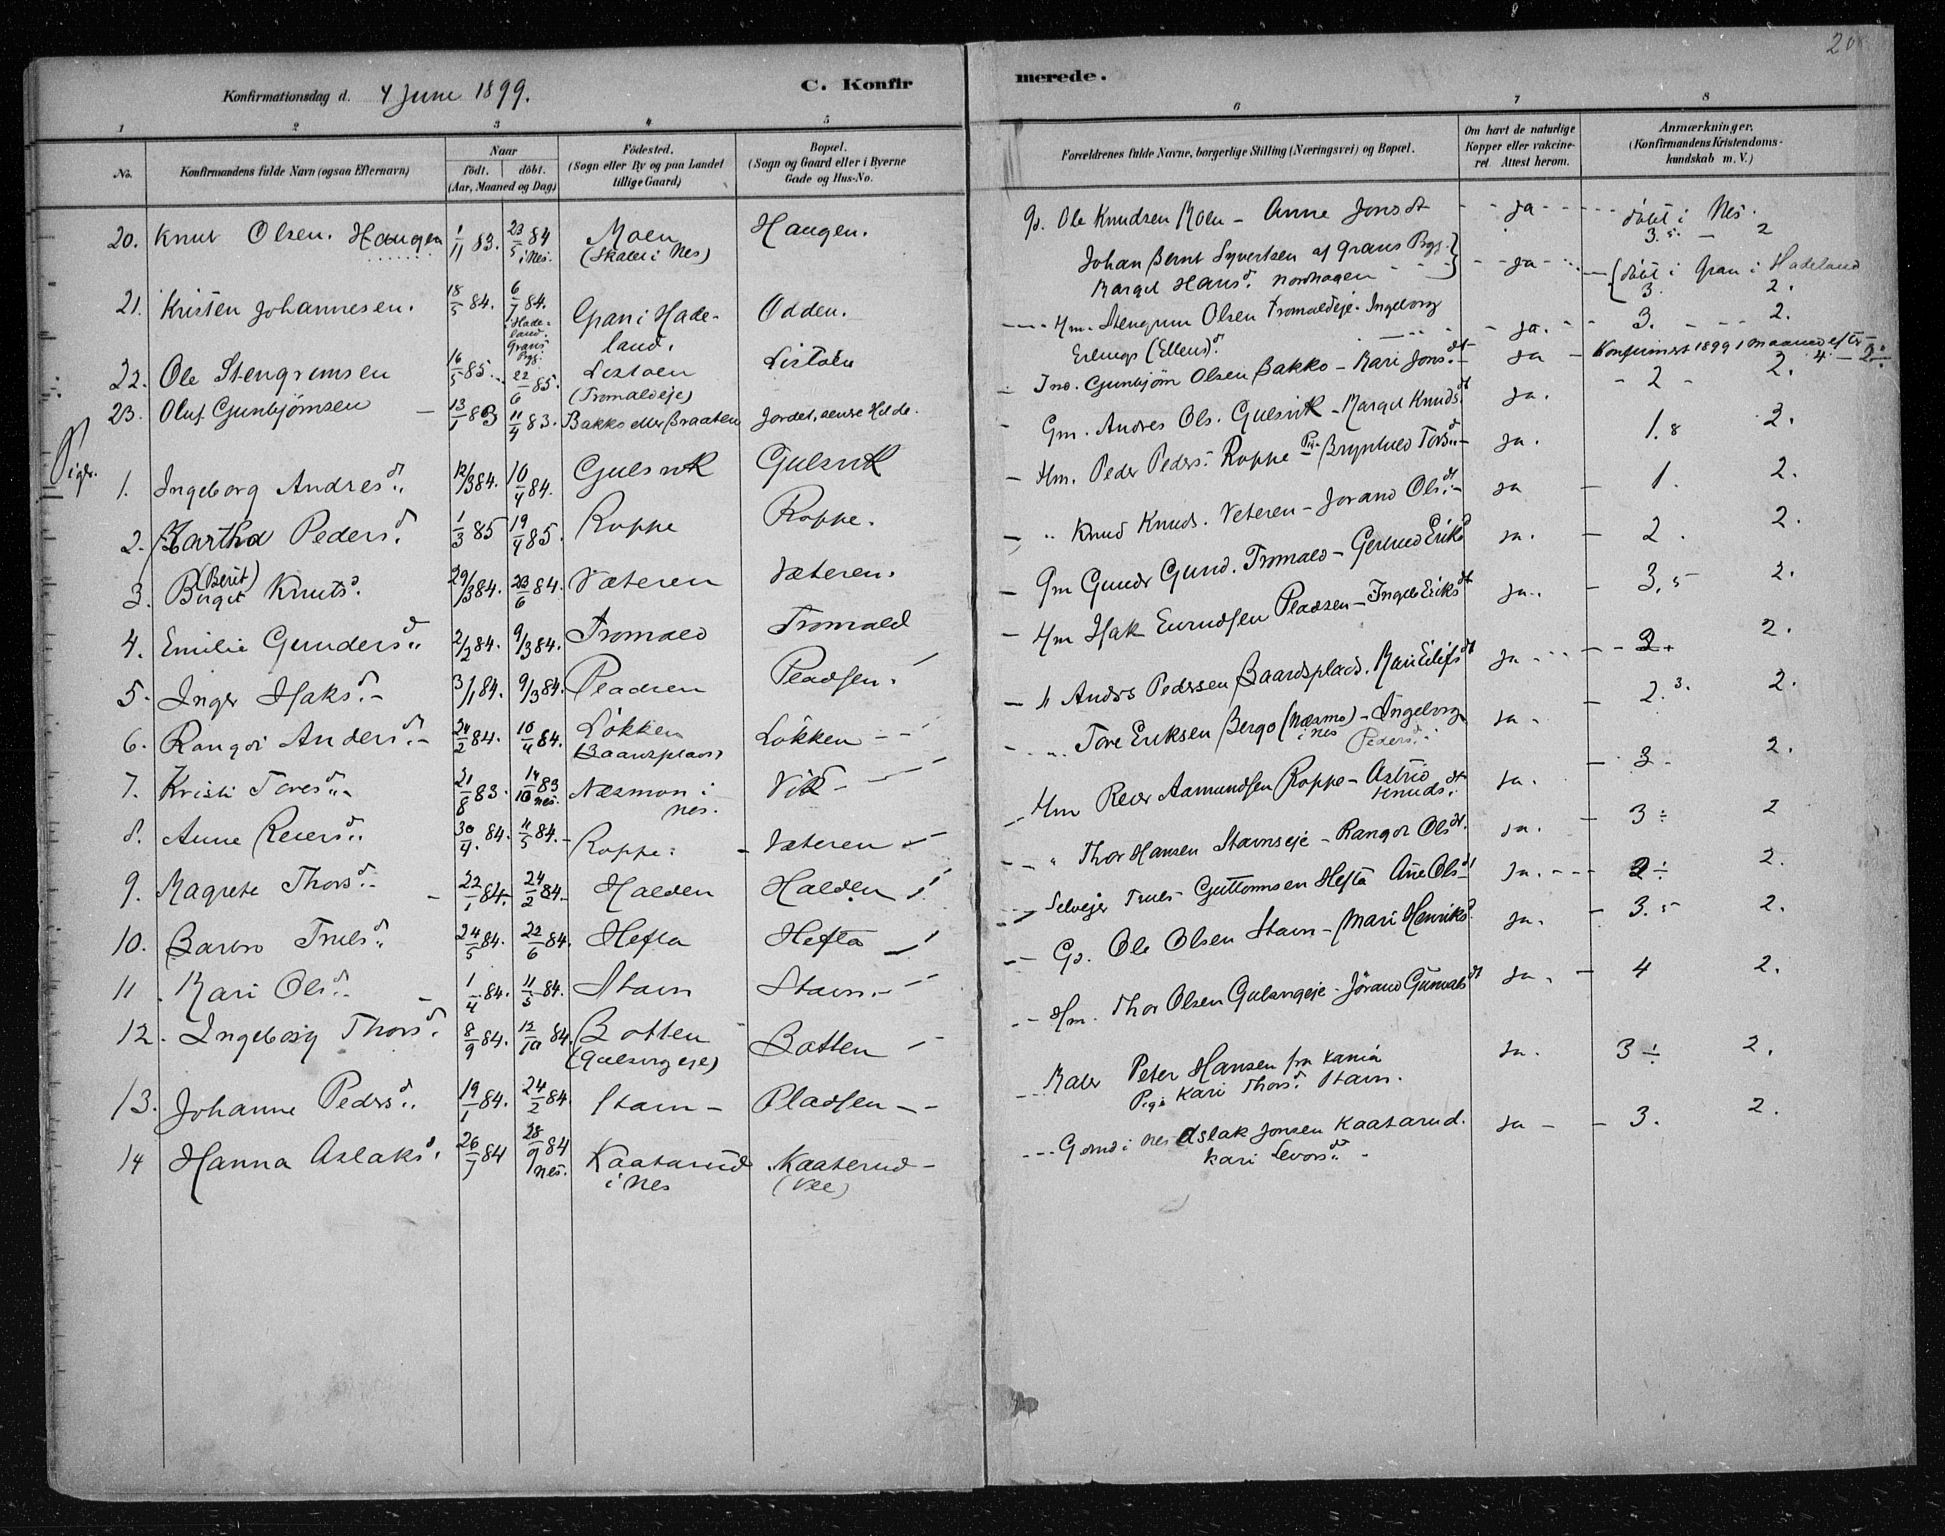 20
Konfirmationsdag d. 4 June 1899.
C. Konfirmerede.
1 2 3 4 5 6 7 8
No. Konfirmandens fulde Navn (ogsaa Efternavn) Naar födt. döbt. (Aar, Maaned og Dag) Födested. (Sogn eller By og paa Landet tillige Gaard) Bopæl. (Sogn og Gaard eller i Byerne Gade og Hus-No. Forældrenes fulde Navne, borgerlige Stilling (Næringsvei) og Bopæl. Om havt de naturlige Kopper eller vakcineret. Attest herom. Anmærkninger. (Konfirmandens Kristendomskundskab m. V.)
20. Knut Olsen. Haugen 1/11 83. 23/5 84 i Nes. Moen (Skaler i Nes) Haugen. Gs. Ole Knudsen Moen - Anne Jonsdt - ja - döbt i Nes. 3.5. - 2
21. Kristen Johannesen. 18/5 84. 6/7 84. i Hadeland. Grans Pgj. Gran i Hadeland. Odden. Johan Bernt Syvertsen af Grans Pgj. Margit Hansd. Nordhagen - ja - döbt i Gran i Hadeland 3. 2.
22. Ole Stengrimsen 16/5 85. 22/6 85. Listoen (Tromaldeje) Listoen Hm. Stengrim Olsen Tromaldeje - Ingeborg Erlings (Ellens)d. - ja. - 3. - 2.
23. Oluf Gunbjörnsen - 13/1 83 11/4 83. Bakko eller Braaten Jordet, senere Hilde. Ino. Gunbjörn Olsen Bakko - Kari Jonsdt - ja - Konfirmert 1899 1 maaned efter 2. 4 - 2
Piger.
1. Ingeborg Andresd. 12/3 84. 10/4 84. Gulsvik Gulsvik Gm. Andres Ols. Gulsvik - Margit Knudsdt ja. - 2 -
2. Martha Pedersd. 1/3 85 19/4 85. Roppe Roppe. Hm. Peder Peders. Roppe Brynhild Torsd. - ja. 1.8 2.
3. Birget (Berit) Knutsd. 29/3 84. 23/6 84. Væteren Væteren. " Knud Knuds. Veteren - Jorand Olsdt. - ja - 1. 2.
4. Emilie Gundersd. 2/2 84. 9/3 84. Tromald Tromald Gm Gunder Gund. Tromald - Gertrud Eriksd ja. - 2. 2.
5. Inger Haksd. - 3/1 84. 9/3 84. Pladsen Pladsen. Hm Hak Enrudsen Pladsen - Ingeb Eriksdt ja. - 3.5 2.
6. Rangdi Andersd. - 24/2 84. 10/4 84. Lökken (Baardsplads) Lökken - - " Anders Pedersen Baardsplads. Kari Eilifsdt ja - - 3+ 2.
7. Kristi Toresd. - 21/8 83. 14/10 83 Nes. Næsmon i Nes. Vik - " Tore Eriksen Bergo (Næsmo) i Nes - Ingeborg Pedersd. ja - 2.3. 2.
8. Anne Reiersd. 30/4. 84. 11/5 84. - Roppe. - Væteren - Hm Reier Aamundsen Roppe - Astrid Knudsdt. ja. - 3 - 2.
9. Magrete Thorsd. - 22/1 84. 24/2 84. Halden Halden " Thor Hansen Stavnseje - Rangdi Olsdt. ja. - 3 ÷ 2
10. Barbro Trulsd. 24/5 84. 22/6 84. Hefta Hefta Selvejer Truls Guttormsen Hefta Ane Olsd ja. - 2 ÷ 2.
11. Kari Olsd. - 1/4 84. 11/5 84. Stavn Stavn. - Gs. Ole Olsen Stavn - Mari Henriksd. ja. - 3.5 2.
12. Ingeborg Thorsd. 8/9 84. 12/10 84. Botten (Gulsvigeje) Botten - Hm. Thor Olsen Gulsvigeje - Jörand Gunvalsdt ja. - 4 2.
13. Johanne Pedersd. 19/1 84. 24/2 84. Stavn - Pladsen - - Maler Peter Hansen fra Xania Pige Kari Thorsd. Stavn. ja. 3 ÷ 2.
14 Hanna Aslaksd. 26/7 84 28/9 84 Nes. Kaatarud i Nes Kaaterud - Gmd i Nes Aslak Jonsen Kaatarud. Kari Levorsd. - ja - - 3. 2.